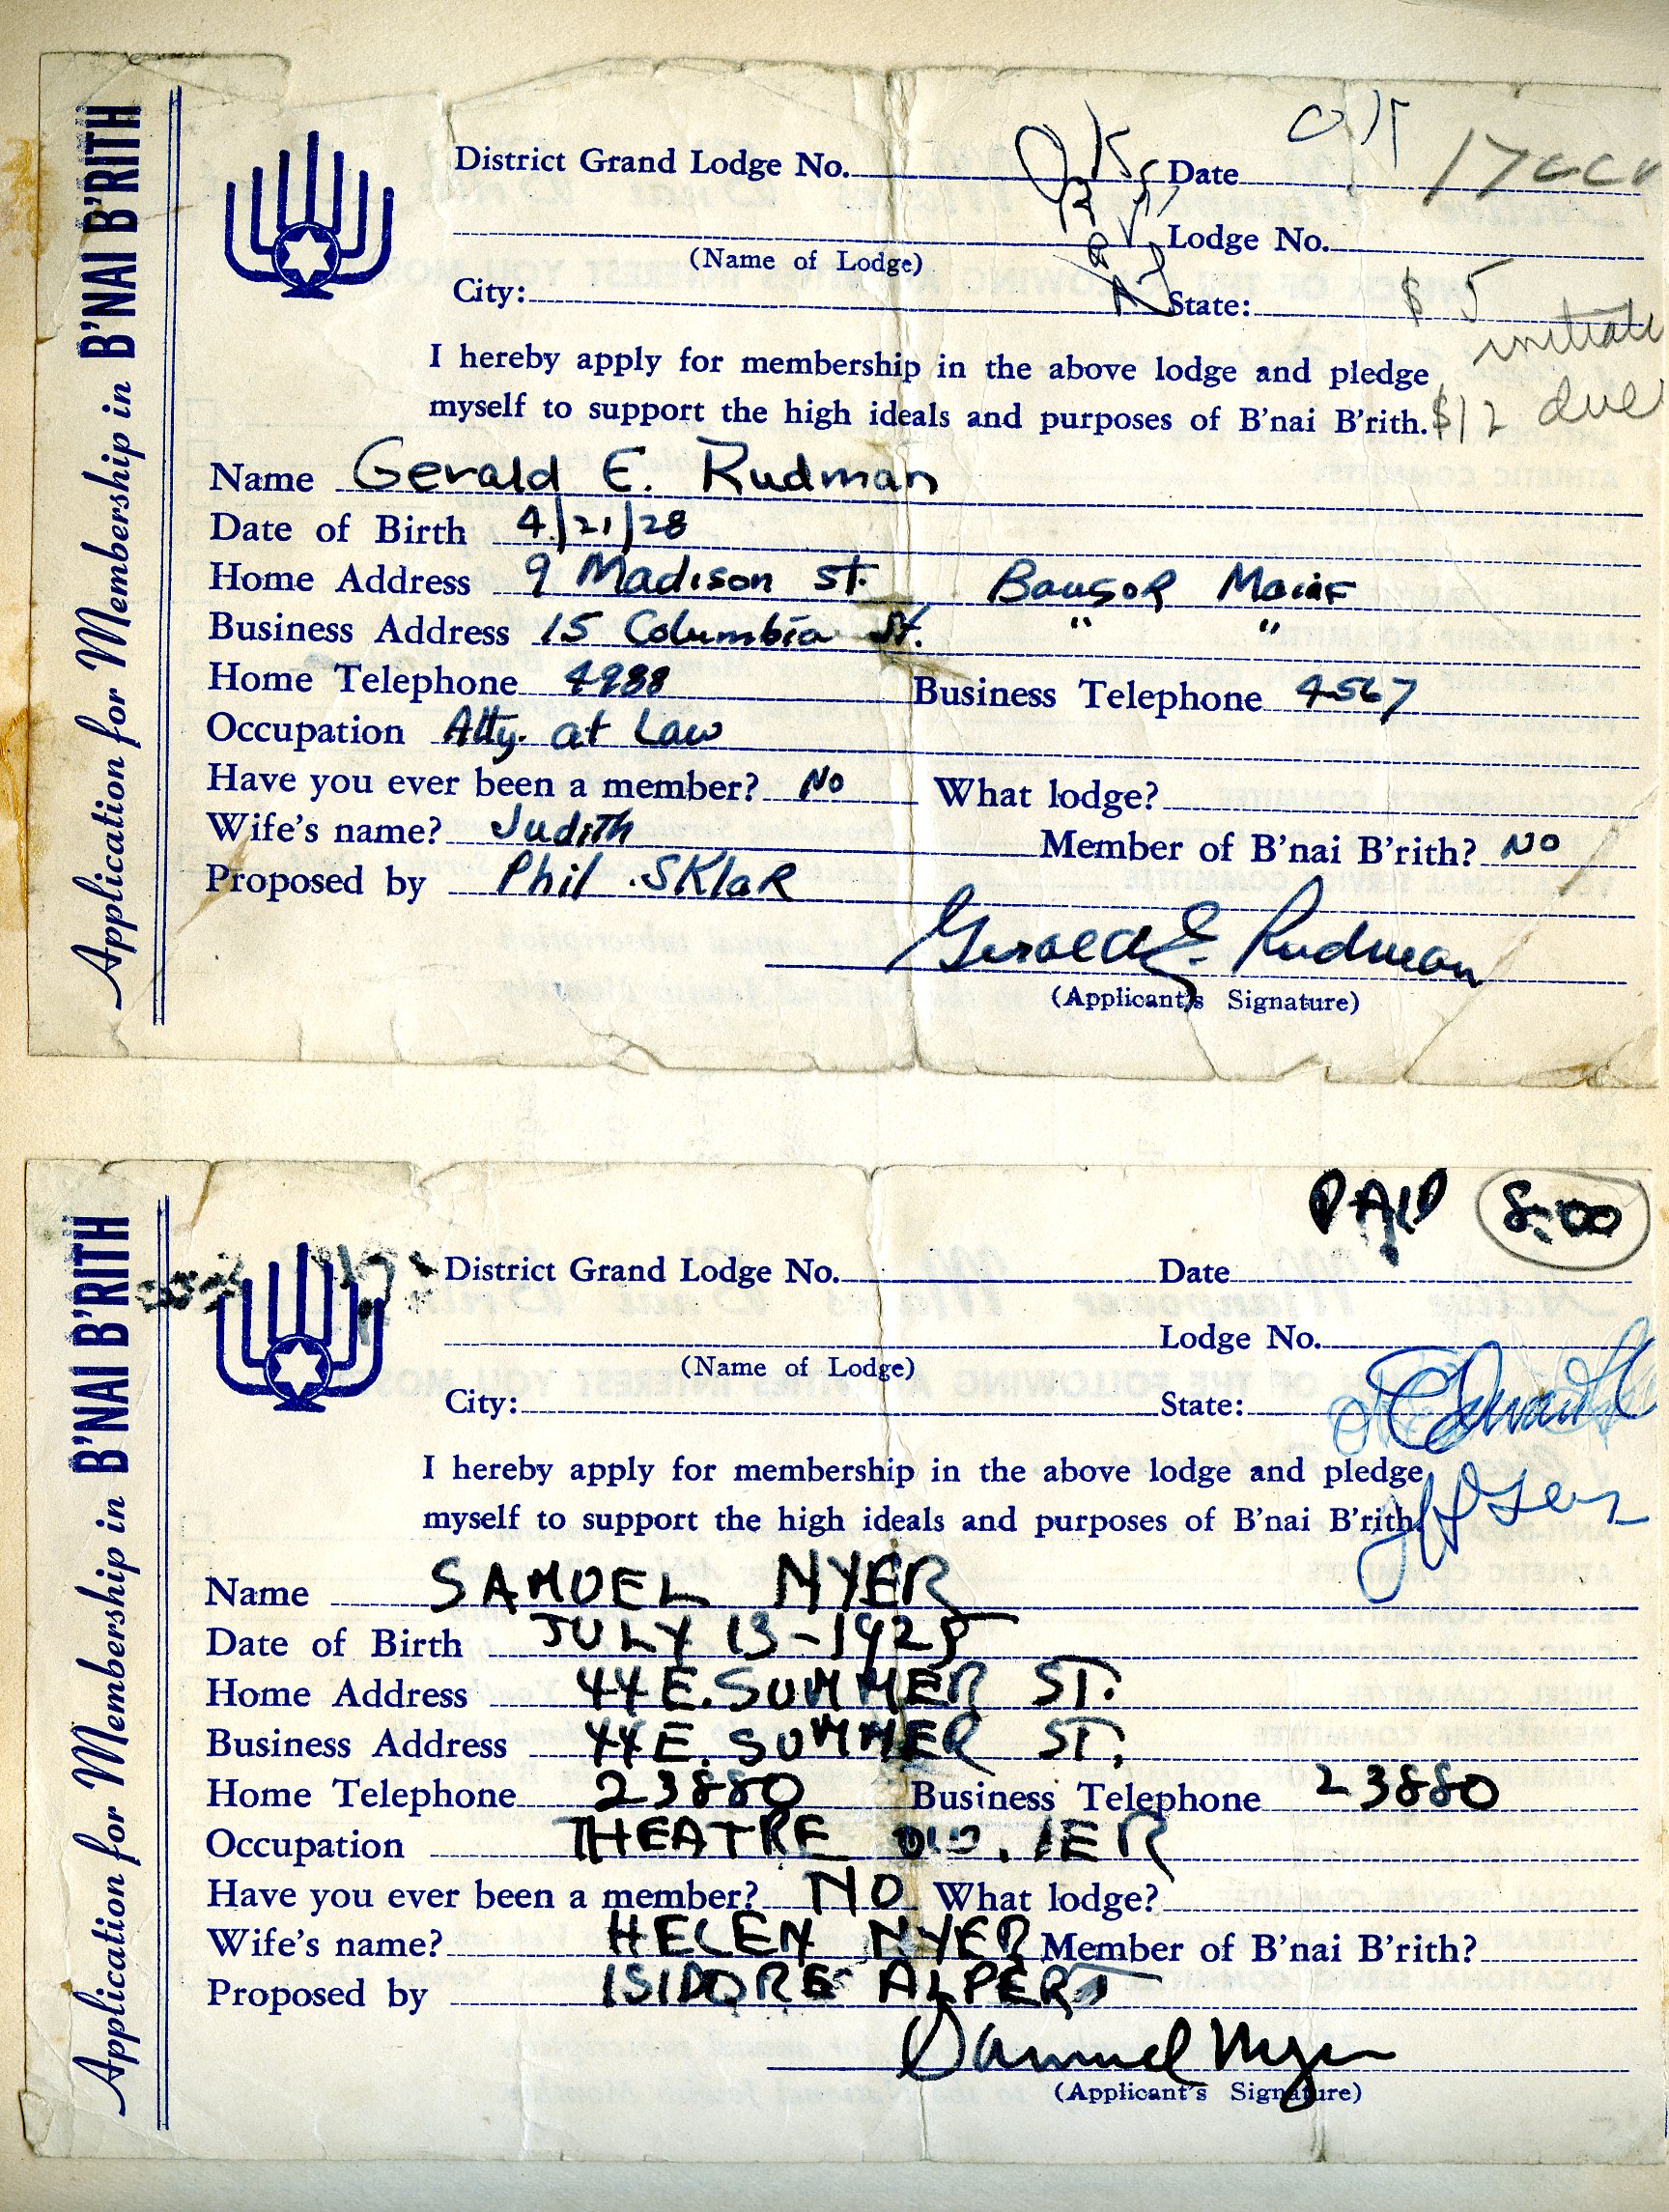 Application for Membership in B'NAI B'RITH
District Grand Lodge No. Date
Lodge No.
(Name of Lodge)
City: State: $ 5
I hereby apply for membership in the above lodge and pledge
myself to support the high ideals and purposes of B'nai B'rith. $12 due
Name Gerald E. Rudman
Date of Birth 4/21/28
Home Address 9 Madison St. Bangor Maine
Business Address 15 Columbia St. " "
Home Telephone 4988 Business Telephone 4567
Occupation Atty. at Law
Have you ever been a member? No What lodge?
Wife's name? Judith Member of B'nai B'rith? NO
Proposed by Phil SKlaR
Gerald E. Rudman
(Applicant's Signature)
Application for Membership in B'NAI B'RITH
PAID 8.00
District Grand Lodge No. Date
Lodge No.
(Name of Lodge)
City: State:
I hereby apply for membership in the above lodge and pledge
myself to support the high ideals and purposes of B'nai B'rith.
Name SAMUEL NYER
Date of Birth JULY 13-1925
Home Address 44 E. SUMMER ST.
Business Address 44 E. SUMMER ST.
Home Telephone 23880 Business Telephone 23880
Occupation THEATRE
Have you ever been a member? NO What lodge?
Wife's name? HELEN NYER Member of B'nai B'rith?
Proposed by ISIDORE ALPERT
Samuel Nyer
(Applicant's Signature)